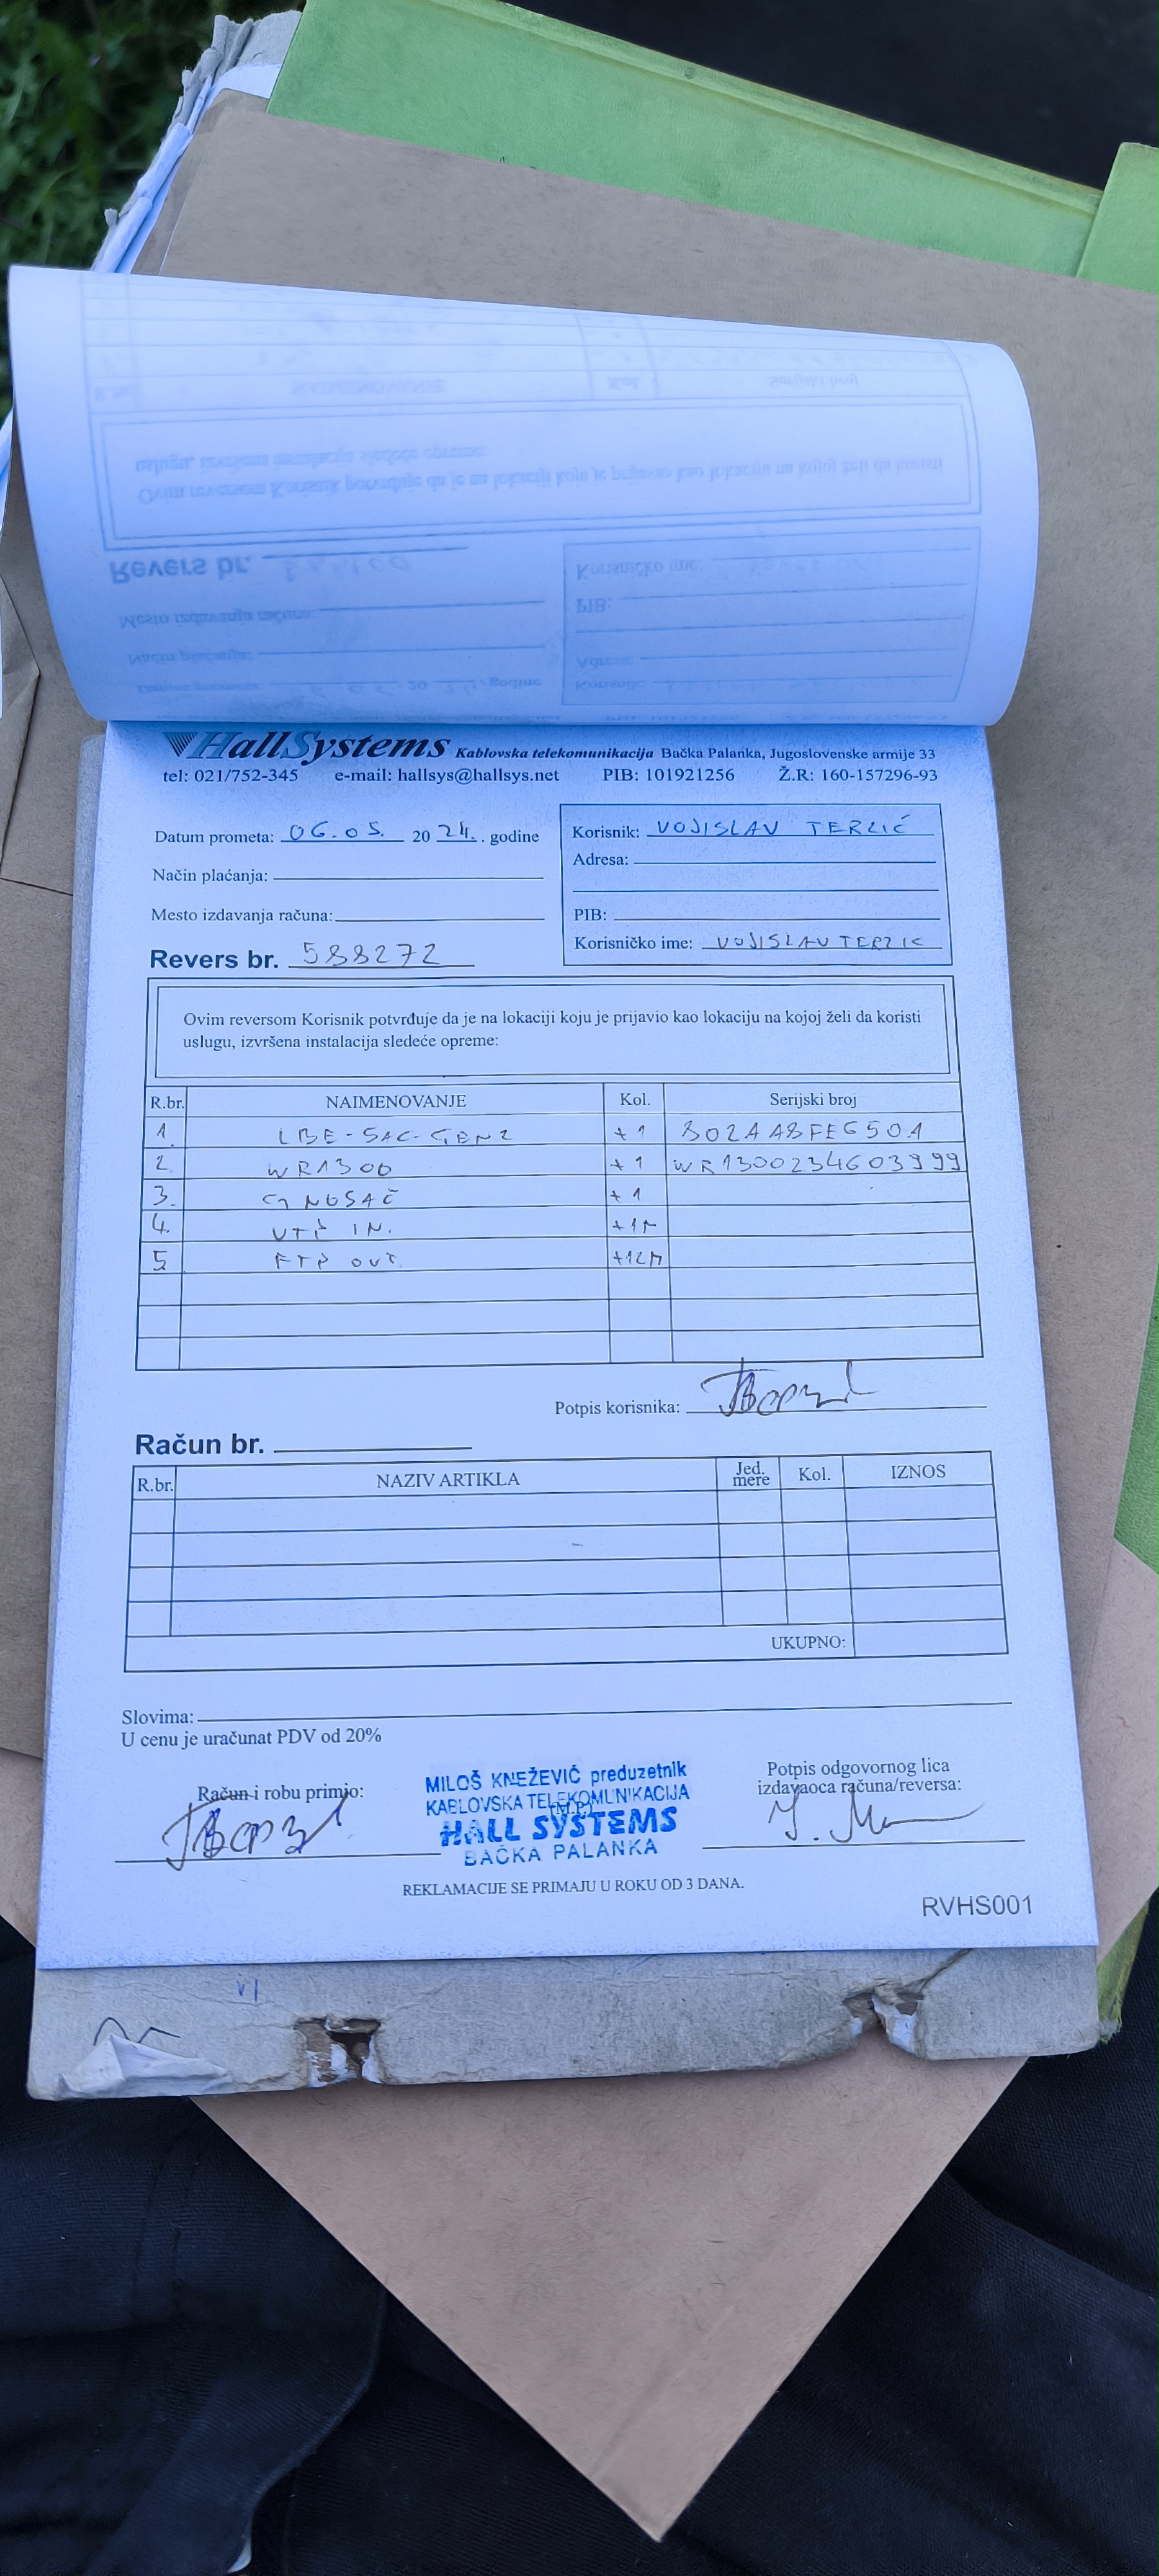 HallSystems Kablovska telekomunikacija Bačka Palanka, Jugoslovenske armije 33
tel: 021/752-345 e-mail: hallsys@hallsys.net PIB: 101921256 Ž.R: 160-157296-93
Datum prometa: 06.05. 20 24. . godine
Način plaćanja:
Mesto izdavanja računa:
Revers br. 588272
Korisnik: VOJISLAV TERZIĆ
Adresa:
PIB:
Korisničko ime: VOJISLAVTERZIC
Ovim reversom Korisnik potvrđuje da je na lokaciji koju je prijavio kao lokaciju na kojoj želi da koristi
uslugu, izvršena instalacija sledeće opreme:
R.br. NAIMENOVANJE Kol. Serijski broj
1. LBE-5AC-GEN2 +1 802AA8FE6501
2. WR1300 +1 WR1300234603999
3. NOSAČ +1
4. UTP IN. +1M
5 FTP OUT +12M
Potpis korisnika:
Račun br.
R.br. NAZIV ARTIKLA Jed. mere Kol. IZNOS
UKUPNO:
Slovima:
U cenu je uračunat PDV od 20%
Račun i robu primio:
MILOŠ KNEŽEVIĆ preduzetnik
KABLOVSKA TELEKOMUNIKACIJA
(M.P.)
HALL SYSTEMS
BAČKA PALANKA
Potpis odgovornog lica
izdavaoca računa/reversa:
REKLAMACIJE SE PRIMAJU U ROKU OD 3 DANA.
RVHS001